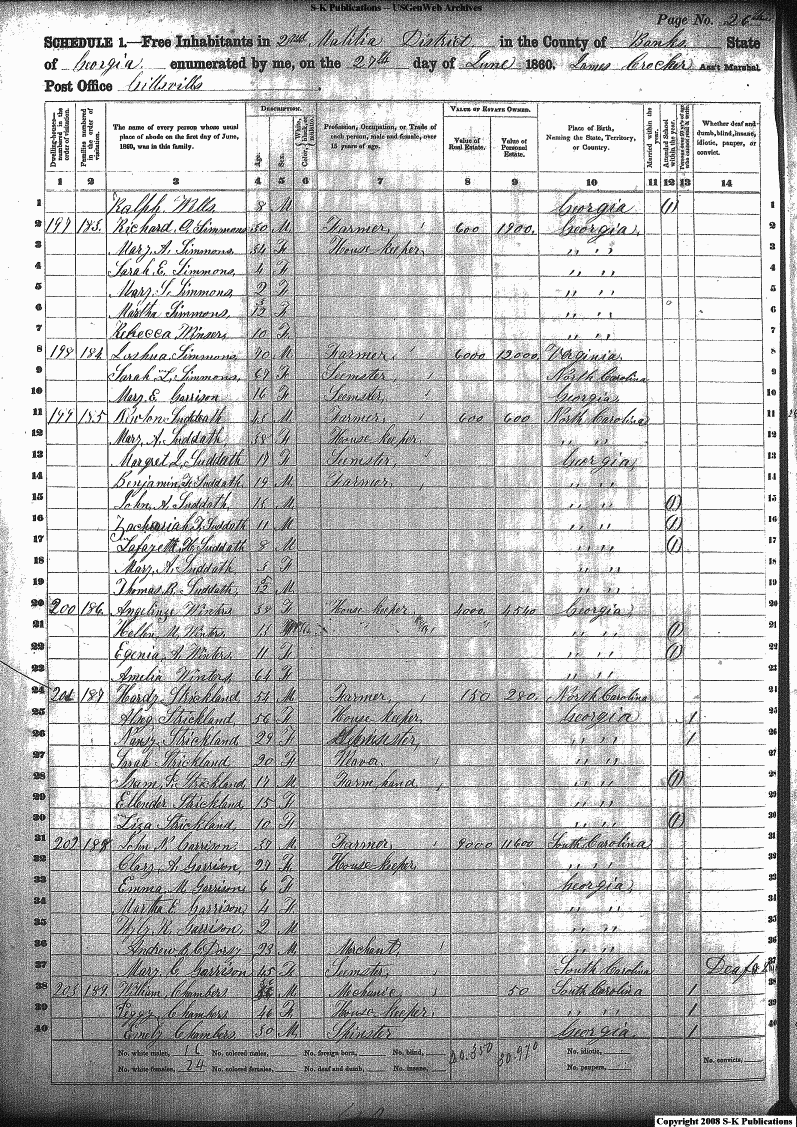 S-K Publications – USGenWeb Archives
Page No. 26
SCHEDULE 1.—Free Inhabitants in 2nd Malitia District in the County of Banks State
of Georgia enumerated by me, on the 27th day of June 1860. James Crocker Ass't Marshal.
Post Office Gillsville
Dwelling-houses—numbered in the order of visitation.
Families numbered in the order of visitation.
The name of every person whose usual place of abode on the first day of June, 1860, was in this family.
DESCRIPTION.
Age.
Sex.
Color, White, black, or mulatto.
Profession, Occupation, or Trade of each person, male and female, over 15 years of age.
VALUE OF ESTATE OWNED.
Value of Real Estate.
Value of Personal Estate.
Place of Birth, Naming the State, Territory, or Country.
Married within the year.
Attended School within the year.
Persons over 20 y'rs of age who cannot read & write.
Whether deaf and dumb, blind, insane, idiotic, pauper, or convict.
1 2 3 4 5 6 7 8 9 10 11 12 13 14
1 Ralph Wells 8 M Georgia (1) 1
2 197 183 Richard O. Simmons 30 M Farmer 600 1900 Georgia 2
3 Mary A. Simmons 34 F House keeper " " 3
4 Sarah E. Simmons 4 F " " 4
5 Mary S. Simmons 2 F " " 5
6 Martha Simmons F " " 6
7 Rebecca 10 F " " 7
8 198 184 Simmons 70 M Farmer 6000 12000 Verginia 8
9 Sarah L. Simmons 67 F Seemster North Carolina 9
10 Mary E. Garrison 16 F Seemster Georgia 10
11 199 185 Suddath M Farmer 600 600 North Carolina 11
12 Mary A. Suddath 38 F House keeper " " 12
13 Margret L. Suddath 17 F Seemster Georgia 13
14 Benjamin F. Suddath 19 M Farmer " " 14
15 John A. Suddath M " " (1) 15
16 Zachariah T. Suddath 11 M " " (1) 16
17 Lafayett H. Suddath 8 M " " (1) 17
18 Mary A. Suddath 3 F " " 18
19 Thomas R. Suddath M " " 19
20 200 186 Angeline Winters 38 F House keeper 4000 4540 Georgia 20
21 M. Winters 13 " " (1) 21
22 Egenia A. Winters 11 F " " (1) 22
23 Amelia Winters 64 F " " 23
24 201 187 Hardy Strickland 54 M Farmer 150 280 North Carolina 24
25 Strickland 56 F House keeper Georgia 1 25
26 Nancy Strickland 29 F " " 1 26
27 Sarah Strickland 20 F Weaver " " 27
28 Strickland 17 M Farm hand " " (1) 28
29 Ellender Strickland 15 F " " 29
30 Liza Strickland 10 F " " (1) 30
31 202 188 John N. Garrison 37 M Farmer 9000 11600 South Carolina 31
32 Clary A. Garrison 27 F House keeper " " 32
33 Emma M. Garrison 6 F Georgia 33
34 Martha E. Garrison 4 F " " 34
35 R. Garrison 2 M " " 35
36 Andrew 23 M Merchant " " 36
37 Mary C. Garrison 45 F Seemster South Carolina Deaf 37
38 203 189 William Chambers M Mechanic 50 South Carolina 1 38
39 Peggy Chambers 46 F House keeper " " 1 39
40 Emely Chambers 30 M Spinster Georgia 1 40
No. white males, 16 No. colored males, No. foreign born, No. blind, 20.350 30.970 No. idiotic,
No. white females, 24 No. colored females, No. deaf and dumb, No. insane, No. paupers, No. convicts,
Copyright 2008 S-K Publications